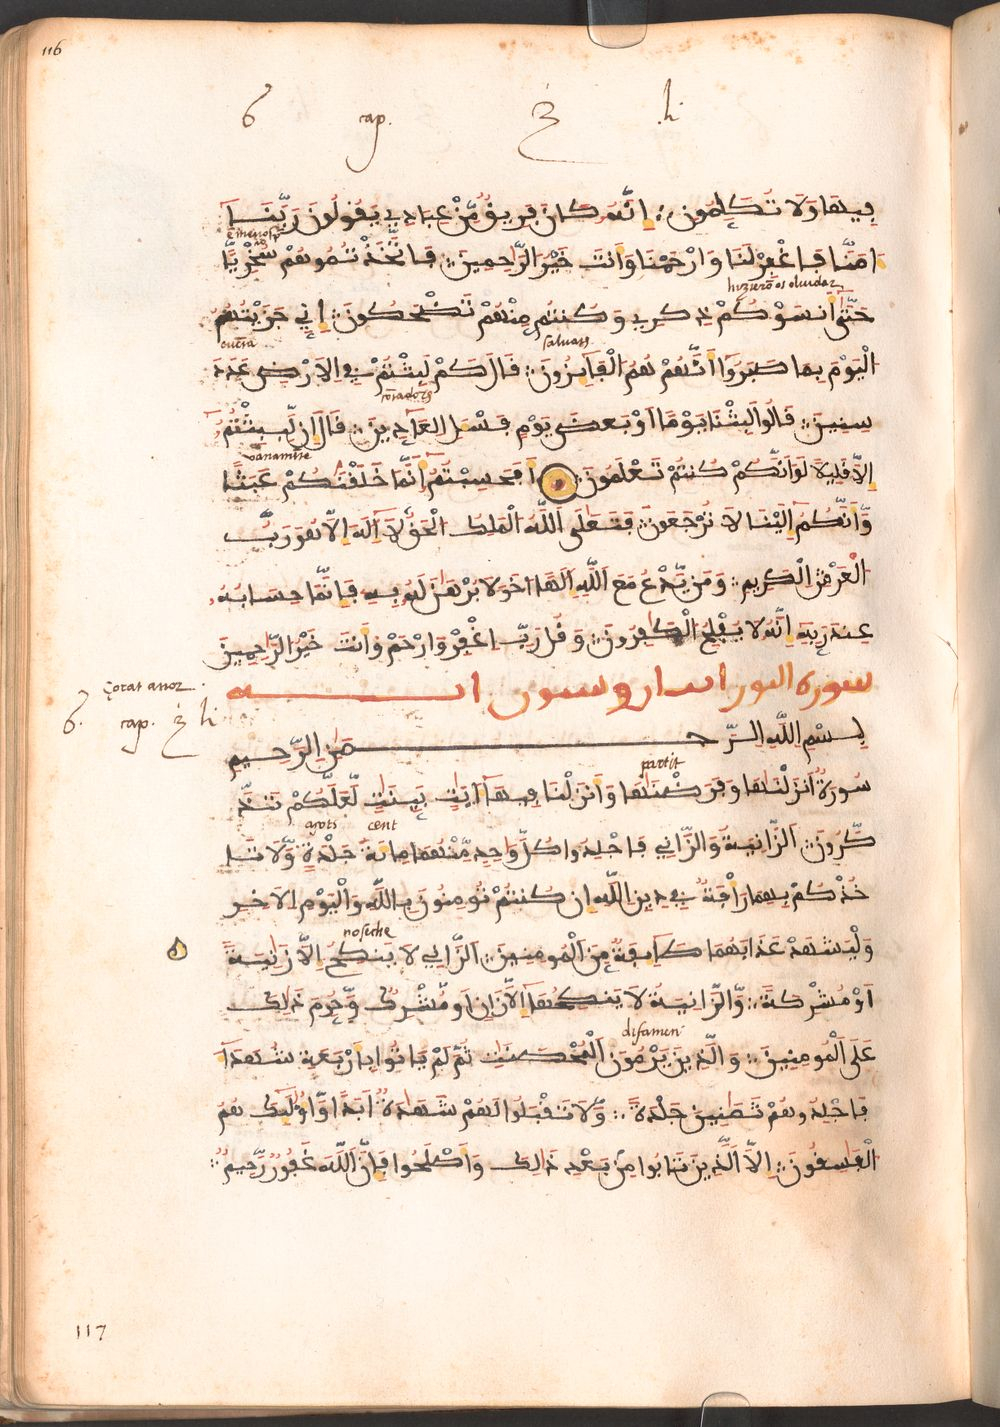 116
6 cap. 3 li
فيها ولا تُكَلِّمُونِ إِنَّهُ كَانَ فَرِيقٌ مِّنْ عِبَادِي يَقُولُونَ رَبَّنَا
ءَامَنَّا فَاغْفِرْ لَنَا وَارْحَمْنَا وَأَنتَ خَيْرُ الرَّاحِمِينَ فَاتَّخَذْتُمُوهُمْ سُخْرِيًّا
hizierō os oluidar
حَتَّى أَنسَوْكُمْ ذِكْرِي وَكُنتُم مِّنْهُمْ تَضْحَكُونَ إِنِّي جَزَيْتُهُمُ
saluats
الْيَوْمَ بِمَا صَبَرُوا أَنَّهُمْ هُمُ الْفَائِزُونَ قَالَ كَمْ لَبِثْتُمْ فِي الْأَرْضِ عَدَدَ
cōtadors
سِنِينَ قَالُوا لَبِثْنَا يَوْمًا أَوْ بَعْضَ يَوْمٍ فَسْـَٔلِ الْعَادِّينَ قَالَ إِن لَّبِثْتُمُ
uanamtre
إِلَّا قَلِيلًا لَّوْ أَنَّكُمْ كُنتُمْ تَعْلَمُونَ أَفَحَسِبْتُمْ أَنَّمَا خَلَقْنَاكُمْ عَبَثًا
وَأَنَّكُمْ إِلَيْنَا لَا تُرْجَعُونَ فَتَعَلَى اللَّهُ الْمَلِكُ الْحَقُّ لَا إِلَهَ إِلَّا هُوَ رَبُّ
الْعَرْشِ الْكَرِيمِ وَمَن يَّدْعُ مَعَ اللَّهِ إِلَهًا آخَرَ لَا بُرْهَنَ لَهُ بِهِ فَإِنَّمَا حِسَابُهُ
عِندَ رَبِّهِ إِنَّهُ لَا يُفْلِحُ الْكَفِرُونَ وَقُل رَّبِّ اغْفِرْ وَارْحَمْ وَأَنتَ خَيْرُ الرَّاحِمِينَ
سورة النور اثنان وستون اية
çorat anor
6. cap. 3 li
بِسْمِ اللَّهِ الرَّحْمَنِ الرَّحِيمِ
partit
سُورَةٌ أَنزَلْنَهَا وَفَرَضْنَهَا وَأَنزَلْنَا فِيهَا آيَتٍ بَيِّنَتٍ لَّعَلَّكُمْ تَذَّ
açots cent
كَّرُونَ الزَّانِيَةُ وَالزَّانِي فَاجْلِدُوا كُلَّ وَاحِدٍ مِّنْهُمَا مِائَةَ جَلْدَةٍ وَّلَا تَا
خُذْكُم بِهِمَا رَأْفَةٌ فِي دِينِ اللَّهِ إِن كُنتُمْ تُومِنُونَ بِاللَّهِ وَالْيَوْمِ الْآخِرِ
no se che
وَلْيَشْهَدْ عَذَابَهُمَا طَائِفَةٌ مِّنَ الْمُومِنِينَ الزَّانِي لَا يَنكِحُ إِلَّا زَانِيَةً
أَوْ مُشْرِكَةً وَّالزَّانِيَةُ لَا يَنكِحُهَا إِلَّا زَانٍ أَوْ مُشْرِكٌ وَّحُرِّمَ ذَلِكَ
difamen
عَلَى الْمُومِنِينَ وَالَّذِينَ يَرْمُونَ الْمُحْصَنَتِ ثُمَّ لَمْ يَاتُوا بِأَرْبَعَةِ شُهَدَآءَ
فَاجْلِدُوهُمْ ثَمَنِينَ جَلْدَةً وَّلَا تَقْبَلُوا لَهُمْ شَهَدَةً أَبَدًا وَّأُولَئِكَ هُمُ
الْفَاسِقُونَ إِلَّا الَّذِينَ تَابُوا مِن بَعْدِ ذَلِكَ وَأَصْلَحُوا فَإِنَّ اللَّهَ غَفُورٌ رَّحِيمٌ
117